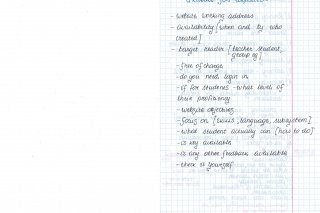 - website working address
- availability [when and by who
created]
- target reader [teacher student,
group eg]
- free of charge
- do you need login in
- if for students - what level of
their proficiency
- website objectives
- focus on [skills, language, subsystem]
- what student actually can [how to do]
- is key available
- is any other feedback available
- check it yourself